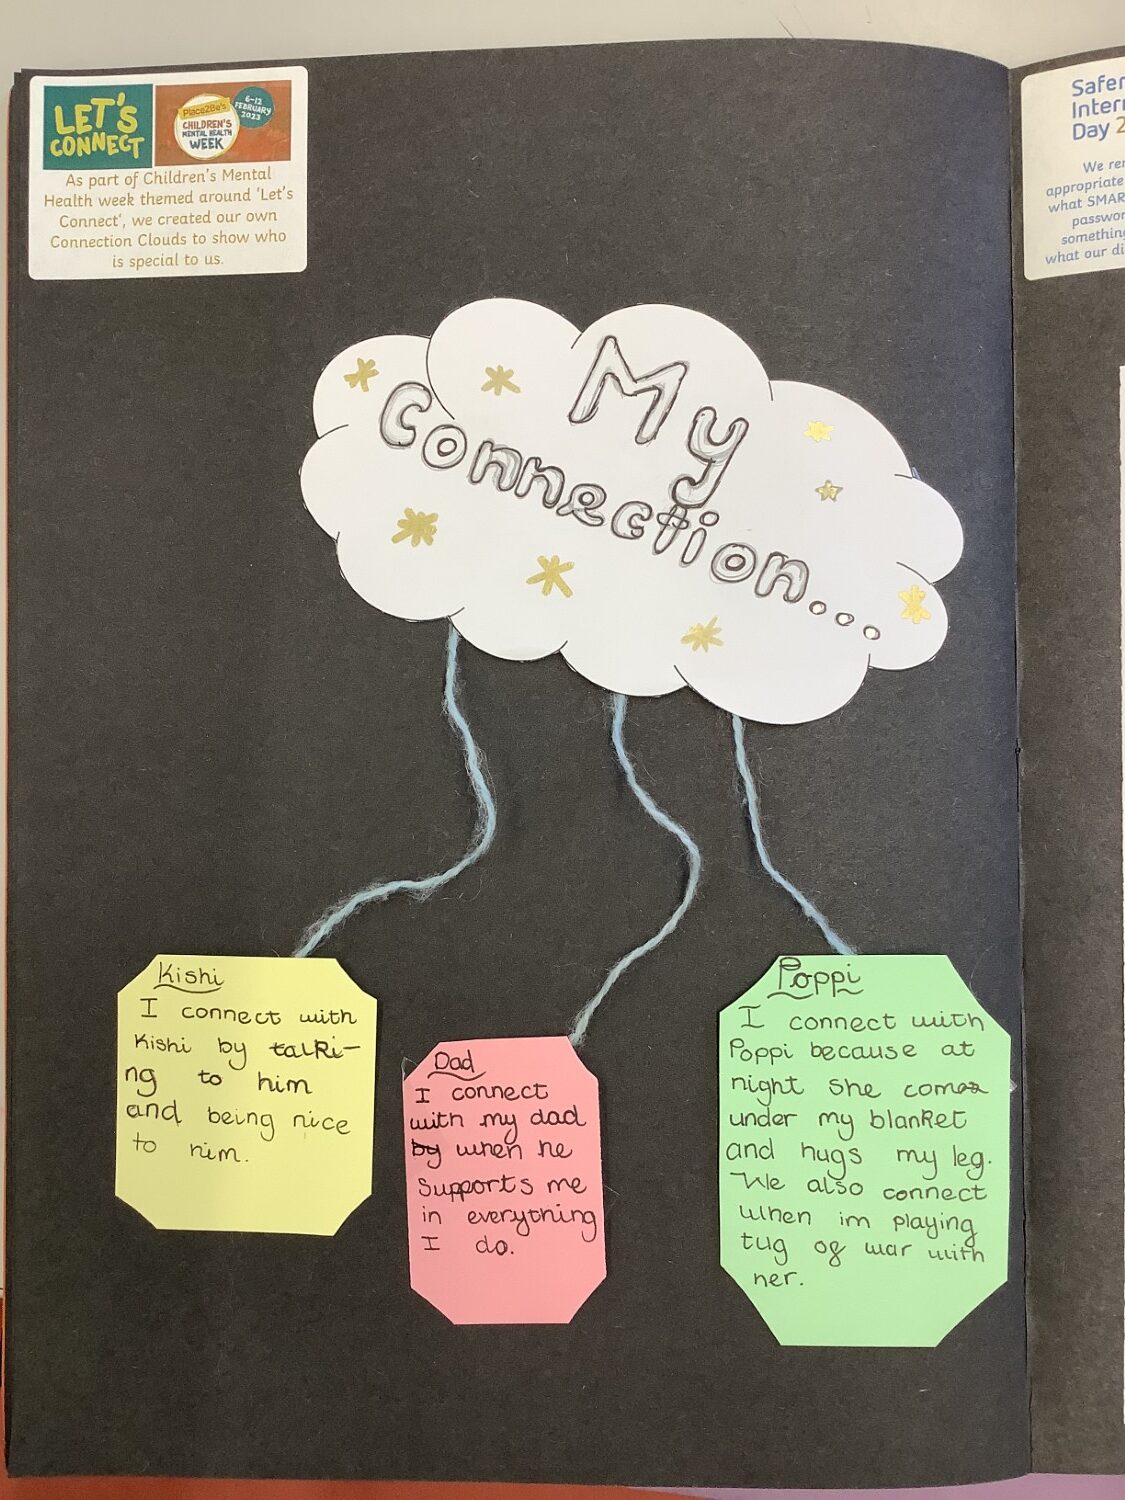 LET'S
CONNECT
Place2Be's
CHILDREN'S
MENTAL HEALTH
WEEK
6-12
FEBRUARY
2023
As part of Children's Mental
Health week themed around 'Let's
Connect', we created our own
Connection Clouds to show who
is special to us.
My
Connection...
Kishi
I connect with
Kishi by talki-
ng to him
and being nice
to him.
Dad
I connect
with my dad
by when he
supports me
in everything
I do.
Poppi
I connect with
Poppi because at
night she comes
under my blanket
and hugs my leg.
We also connect
when im playing
tug of war with
her.
Safer
Inter
Day 2
We re
appropriate
what SMAR
passwor
something
what our di